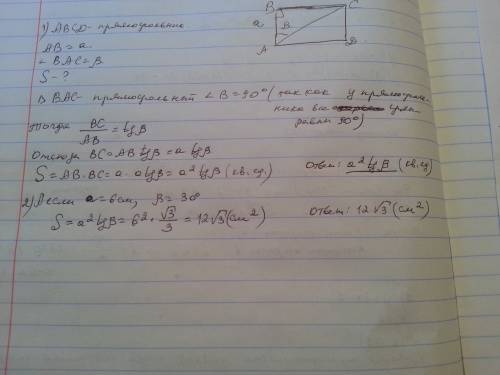 1) ABCD - прямоугольник
B C
a
β
A D
AB = a
∠BAC = β
S - ?
Δ BAC - прямоугольный ∠B = 90° (так как у прямоуголь-
ника все углы
равны 90°)
Тогда BC/AB = tgβ
Отсюда BC = AB tgβ = a tgβ
S = AB · BC = a · a tgβ = a² tgβ (кв. ед.) Ответ: a² tgβ (кв. ед.)
2) Если a = 6см, β = 30°
S = a² tgβ = 6² · √3/3 = 12√3 (см²) Ответ: 12√3 (см²)